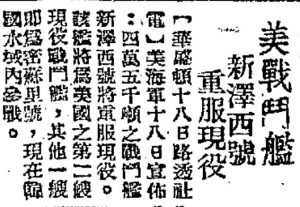 美戰鬥艦
新澤西號
重服現役
【華盛頓十八日路透社
電】美海軍十八日宣佈
：四萬五千噸之戰鬥艦
新澤西號將重服現役。
該艦將為美國之第二艘
現役戰鬥艦，其他一艘
即為密蘇里號，現在韓
國水域內參戰。